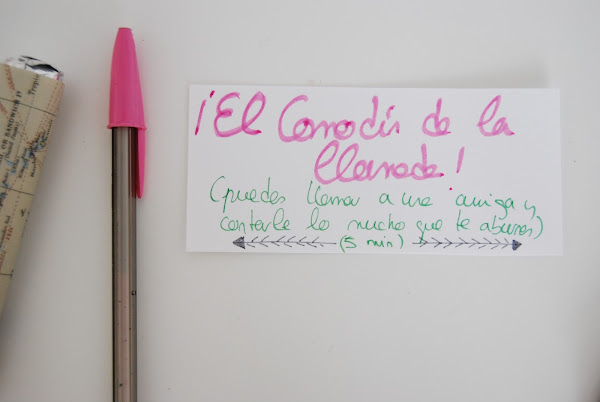 ¡El Comodín de la
llamada!
(puedes llamar a una amiga y
contarle lo mucho que te aburres)
(5 min)
SANDWICH
Tropic